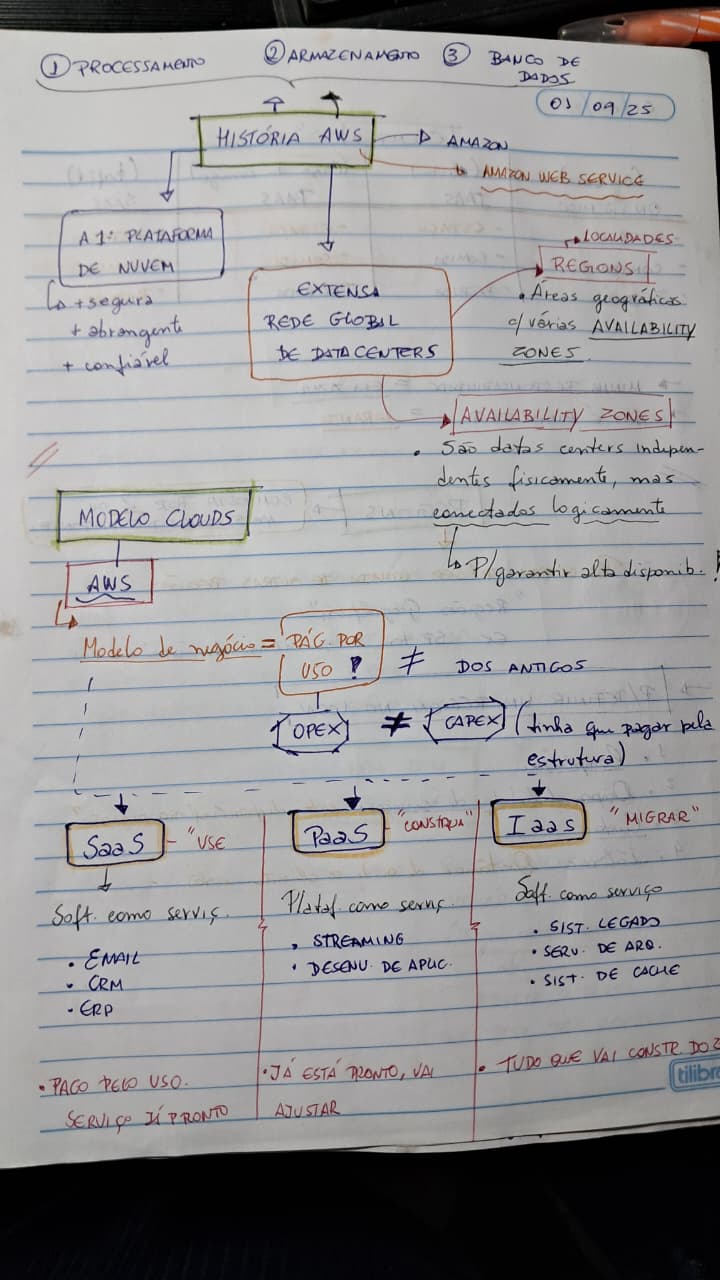 ① PROCESSAMENTO ② ARMAZENAMENTO ③ BANCO DE
DADOS
01/09/25
HISTÓRIA AWS
AMAZON
AMAZON WEB SERVICE
A 1ª PLATAFORMA
DE NUVEM
+ segura
+ abrangente
+ confiável
EXTENSA
REDE GLOBAL
DE DATACENTERS
LOCALIDADES
REGIONS
• Áreas geográficas
c/ várias AVAILABILITY
ZONES.
AVAILABILITY ZONES
• São datas centers indepen-
dentes fisicamente, mas
conectados logicamente
P/ garantir alta disponib.!
MODELO CLOUDS
AWS
Modelo de negócio = PÁG. POR
USO! ≠ DOS ANTIGOS
OPEX ≠ CAPEX (tinha que pagar pela
estrutura)
SaaS - "USE
Soft. como serviç.
• EMAIL
• CRM
• ERP
• PAGO PELO USO.
SERVIÇO JÁ PRONTO
PaaS - "CONSTRUA"
Plataf. como serviç
• STREAMING
• DESENV. DE APLIC.
• JÁ ESTÁ PRONTO, VAI
AJUSTAR
Iaas "MIGRAR"
Soft. como serviço
• SIST. LEGADO
• SERV. DE ARQ.
• SIST. DE CACHE
• TUDO QUE VAI CONSTR. DO
tilibra